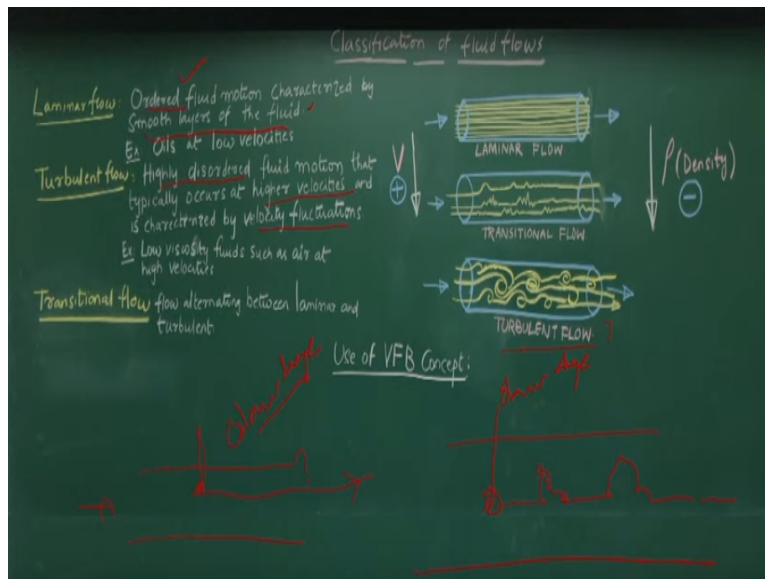 Classification of fluid flows
Laminar flow: Ordered fluid motion characterized by
smooth layers of the fluid.
Ex Oils at low velocities
Turbulent flow: Highly disordered fluid motion that
typically occurs at higher velocities and
is characterized by velocity fluctuations
Ex: Low viscosity fluids such as air at
high velocities
Transitional flow flow alternating between laminar and
turbulent.
LAMINAR FLOW
V
+
ρ (Density)
−
TRANSITIONAL FLOW
TURBULENT FLOW
Use of VFB Concept: